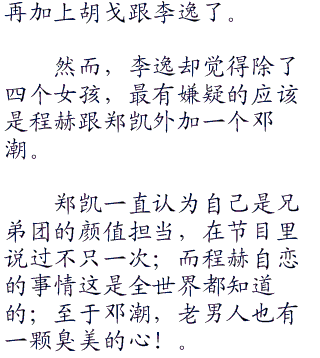 再加上胡戈跟李逸了。
然而，李逸却觉得除了
四个女孩，最有嫌疑的应该
是程赫跟郑凯外加一个邓
潮。
郑凯一直认为自己是兄
弟团的颜值担当，在节目里
说过不只一次；而程赫自恋
的事情这是全世界都知道
的；至于邓潮，老男人也有
一颗臭美的心！。